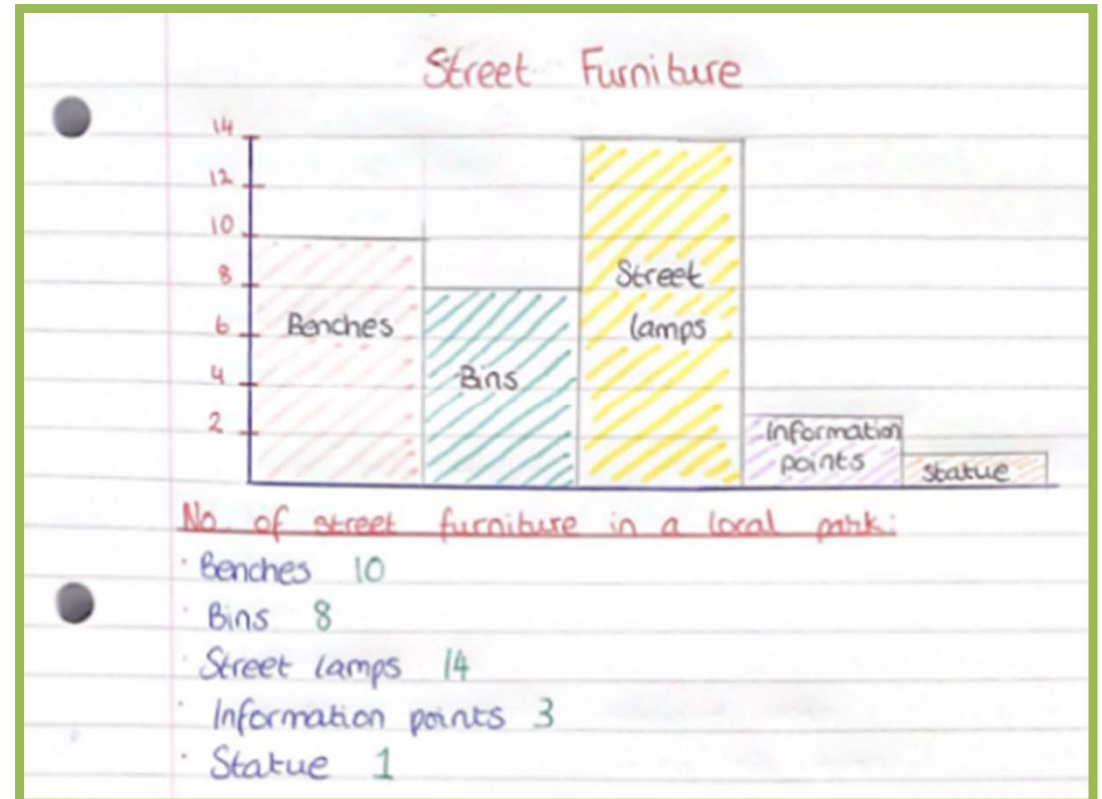 Street Furniture
14
12
10
8
6
4
2
Benches
Bins
Street
lamps
Information
points
Statue
No. of street furniture in a local park:
· Benches 10
· Bins 8
· Street lamps 14
· Information points 3
· Statue 1